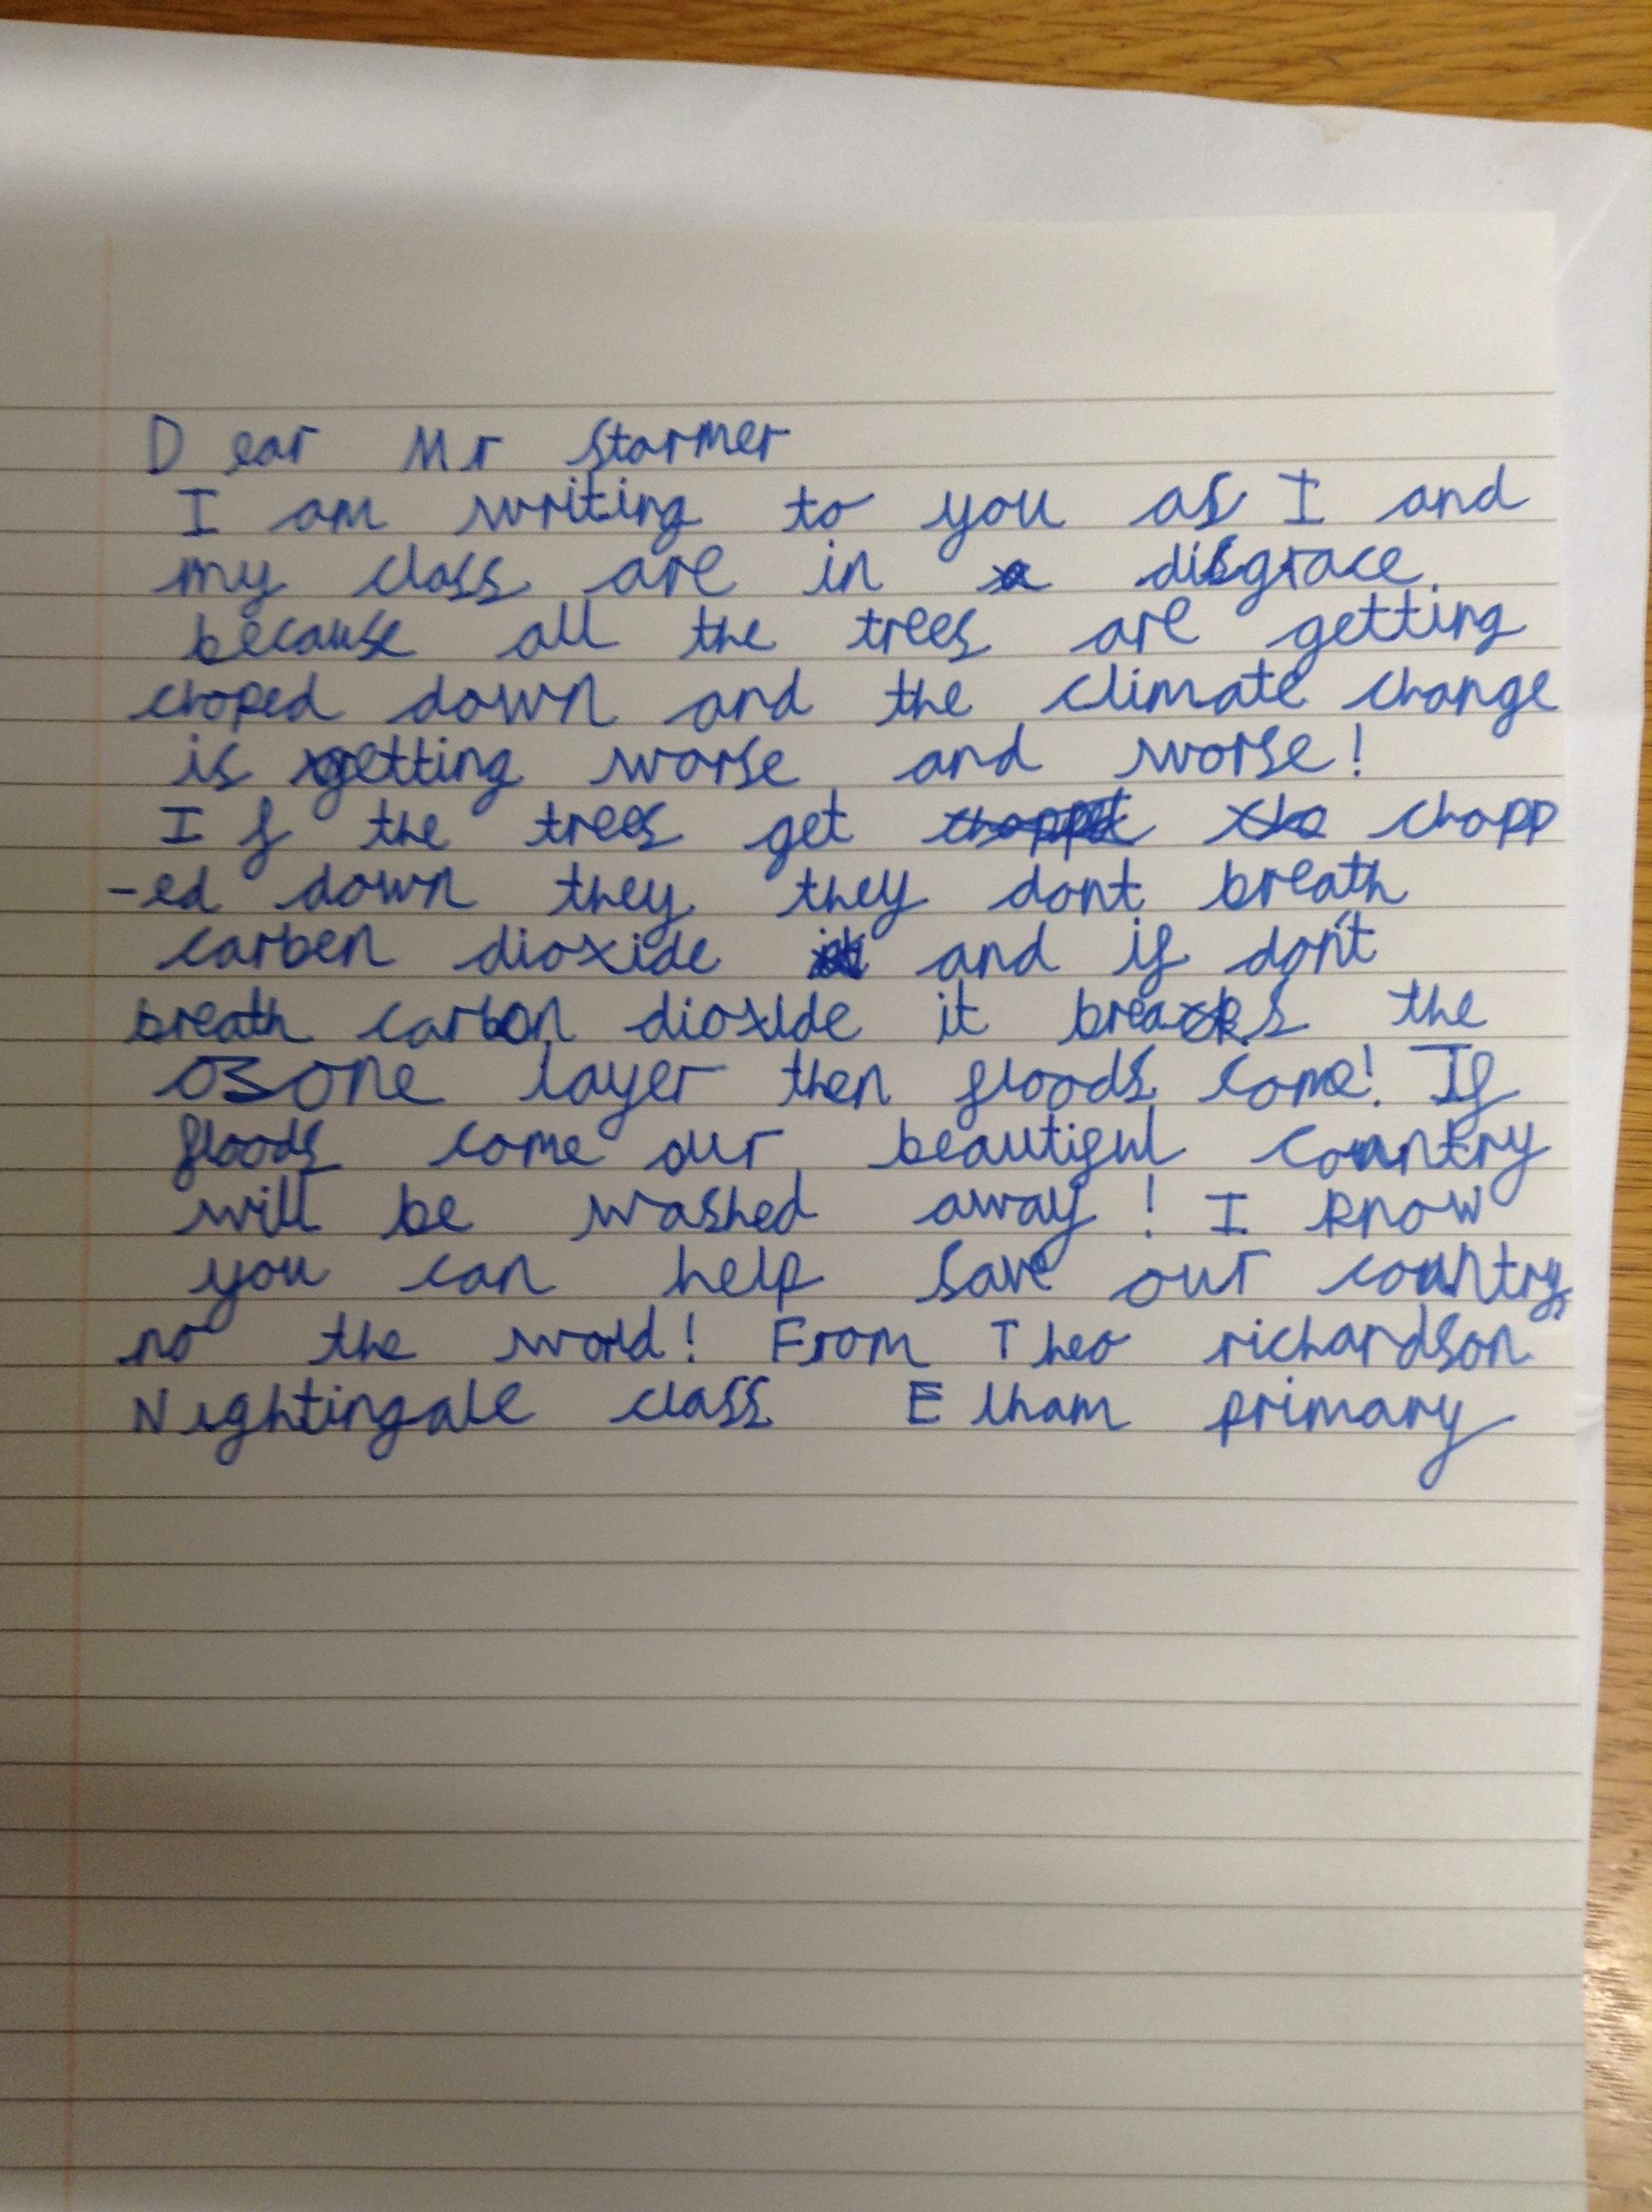 Dear Mr Starmer
I am writing to you as I and
my class are in disgrace.
because all the trees are getting
choped down and the climate change
is getting worse and worse!
If the trees get chopp
-ed down they they dont breath
carben dioxide and if don't
breath carbon dioxide it breaks the
ozone layer then floods come! If
floods come our beautiful country
will be washed away! I know
you can help save our country,
no the world! From Theo richardson
Nightingale class Elham primary